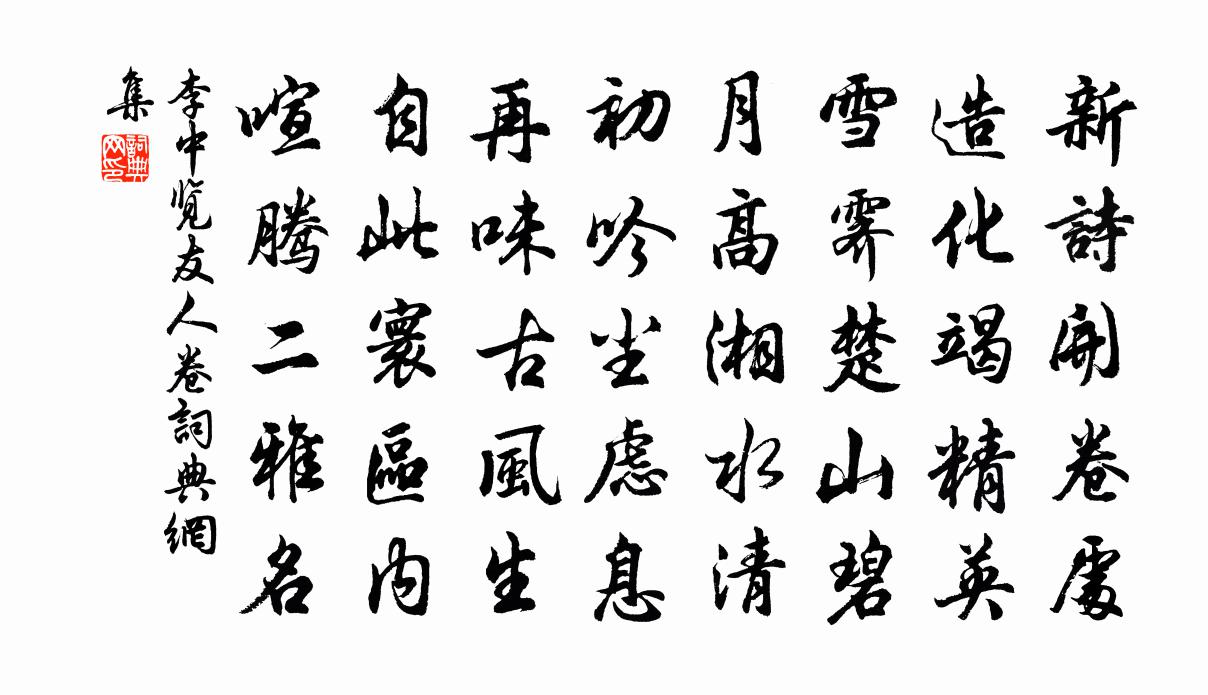 新詩開卷處
造化竭精英
雪霽楚山碧
月高湘水清
初吟尘慮息
再味古風生
自此寰區內
喧騰二雅名
李中览友人卷詞典網
集
詞典
网印